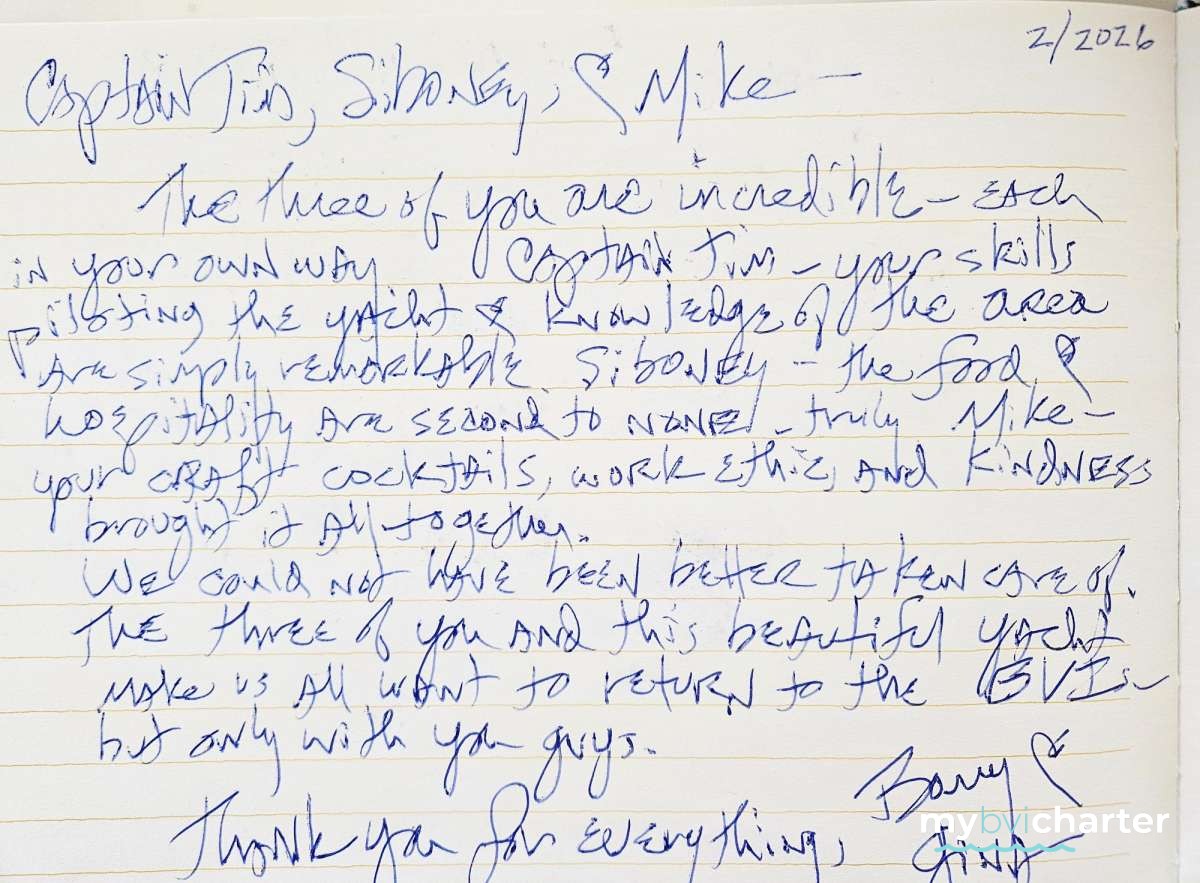 2/2026
Captain Tim, Siboney, & Mike —
The three of you are incredible — each
in your own way Captain Tim — your skills
piloting the yacht & knowledge of the area
are simply remarkable. Siboney — the food &
hospitality are second to none — truly Mike —
your craft cocktails, work ethic, and kindness
brought it all together.
We could not have been better taken care of.
The three of you and this beautiful yacht
make us all want to return to the BVIs
but only with you guys.
Thank you for everything,
Barry &
Gina
mybvicharter